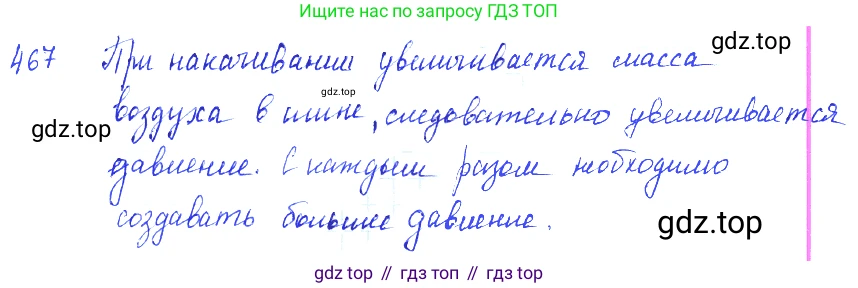 Ищите нас по запросу ГДЗ ТОП
467 При накачивании увеличивается масса gdz.top
gdz.top
воздуха в шине, следовательно увеличивается
gdz.top
давление. С каждым разом необходимо
создавать большее давление.
gdz.top
gdz top // гдз топ // gdz top